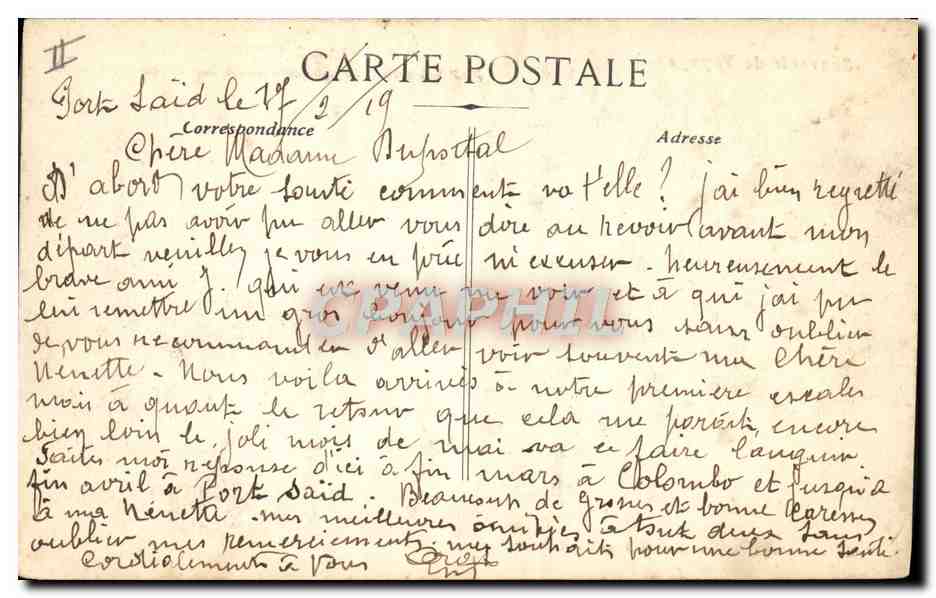 II
CARTE POSTALE
Port Saïd le 17/2/19
Correspondance
Adresse
Chère Madame
D'abord votre santé comment va t'elle? j'ai bien regretté
de ne pas avoir pu aller vous dire au revoir avant mon
départ veuillez je vous en prie m'excuser. heureusement le
brave ami J. qui est venu me voir et à qui j'ai pu
lui remettre un gros bonjour pour vous sans oublier
de vous recommander d'aller voir souvent ma chère
Nénette. Nous voila arrivés à notre première escales
mais à quant le retour que cela me paraît encore
bien loin le joli mois de mai va ce faire languir
Faites moi reponse d'ici à fin mars à Colombo et jusqu'à
fin avril à Port Saïd. Beaucoup de grosses et bonne caresses
à ma Nénette. mes meilleures amitiés à tout deux sans
oublier mes remerciements mes souhaits pour une bonne santé.
Cordialement à Vous
CPAPHIL